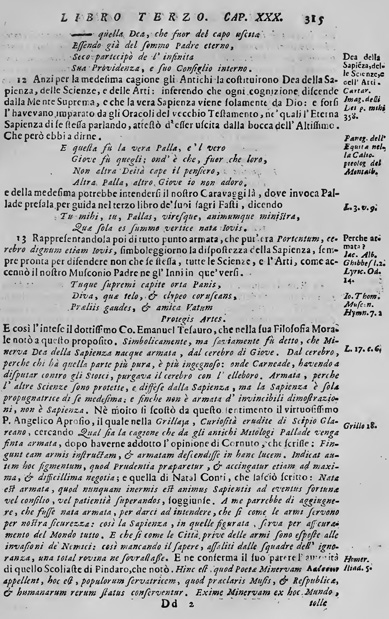 LIBRO TERZO. CAP. XXX. 315
quella Dea, che fuor del capo uscita
Essendo già del sommo Padre eterno,
Seco partecipò de l'infinita
Sua Providenza, e suo Consiglio interno.
12 Anzi per la medesima cagione gli Antichi la costituirono Dea della Sa-
pienza, delle Scienze, e delle Arti: inferendo che ogni cognizione discende
dalla Mente Suprema, e che la vera Sapienza viene solamente da Dio: e forsi
l'havevano imparato da gli Oracoli del vecchio Testamento, ne' quali l'Eterna
Sapienza di se stessa parlando, attestò d'esser uscita dalla bocca dell'Altissimo.
Che però ebbi a dirne.
E questa fù la vera Palla, e'l vero
Giove fù quegli; ond'è che, fuor che loro,
Non altra Deità cape il pensiero,
Altra Palla, altro Giove io non adoro,
e della medesima potrebbe intendersi il nostro Caravaggi là, dove invoca Pal-
lade presala per guida nel terzo libro de'suoi sagri Fasti, dicendo
Tu mihi, tu, Pallas, viresque, animumque ministra,
Qua sola es summo vertice nata Iovis.
13 Rappresentandola poi di tutto punto armata, che pur'era Portentum, ce-
rebro dignum etiam Iovis, simboleggiorno la disposttezza della Sapienza, sem-
pre pronta per difendere non che se stessa, tutte le Scienze, e l'Arti, come ac-
cennò il nostro Musconio Padre ne gl' Inni in que' versi.
Tuque supremi capite orta Panis,
Diva, qua telo, & clypeo coruscans,
Praliis gaudes, & amica Vatum
Protegis Artes.
E così l'intese il dottissimo Co. Emanuel Tesauro, che nella sua Filosofia Mora-
le notò a questo proposito. Simbolicamente, ma saviamente fù detto, che Mi-
nerva Dea della Sapienza nacque armata, dal cerebro di Giove. Dal cerebro,
perche chi hà quella parte più pura, è più ingegnoso: onde Carneade, havendo a
disputar contro gli Stoici, purgava il cerebro con l' elleboro. Armata, perche
l' altre Scienze sono protette, e difese dalla Sapienza, ma la Sapienza è sola
propugnatrice di se medesima: e finche non è armata d' invincibili dimostrazio-
ni, non è Sapienza. Nè molto si scostò da questo sentimento il virtuosissimo
P. Angelico Aprosio, il quale nella Grillaja, Curiosità erudite di Scipio Gla-
reano, cercando Qual sia la cagione che da gli antichi Mitologi Pallade venga
finta armata, dopo haverne addotto l'opinione di Cornuto, che scrisse: Fin-
gunt eam armis instructam, & armatam descendisse in hanc lucem. Indicat au-
tem hoc figmentum, quod Prudentia praparetur, & accingatur etiam ad maxi-
ma, & difficillima negotia; e quella di Natal Conti, che lasciò scritto: Nata
est armata, quod nunquam inermis est animus Sapientis ad eventus fortuna
vel consilio, vel patientia superandos, soggiunse. A me parrebbe di aggiugne-
re, che fusse nata armata, per darci ad intendere, che si come le armi servono
per nostra sicurezza: così la Sapienza, in quelle figurata, serva per assicura-
mento del Mondo tutto. E che si come le Città prive delle armi sono esposte alle
invasioni de' Nemici: così mancando il sapere, assaliti dalle squadre dell' igno-
ranza, una total rovina ne sovrastasse. E ne conferma il suo parere
di quello Scoliaste di Pindaro, che notò. Hinc est quod poeta Minervam
appellent, hoc est, populorum servatricem, quod praclaris Musis, & Respublica,
& humanarum rerum status conserventur. Exime Minervam ex hoc Mundo,
Dd 2 tolle
Dea della
Sapienza, del-
le Scienze, e
dell' Arti.
Cartar.
Imag. delli
Dei p. mihi
358.
Paneg. dell'
L. 3. v. 9.
Perche ar-
mata?
Iac. Alb.
Lyric. Od.
14.
Io. Thom.
Muscon.
Hymn. 7. 2
L. 17. c. 6.
Grillo 28.
Homer.
Iliad. 5.